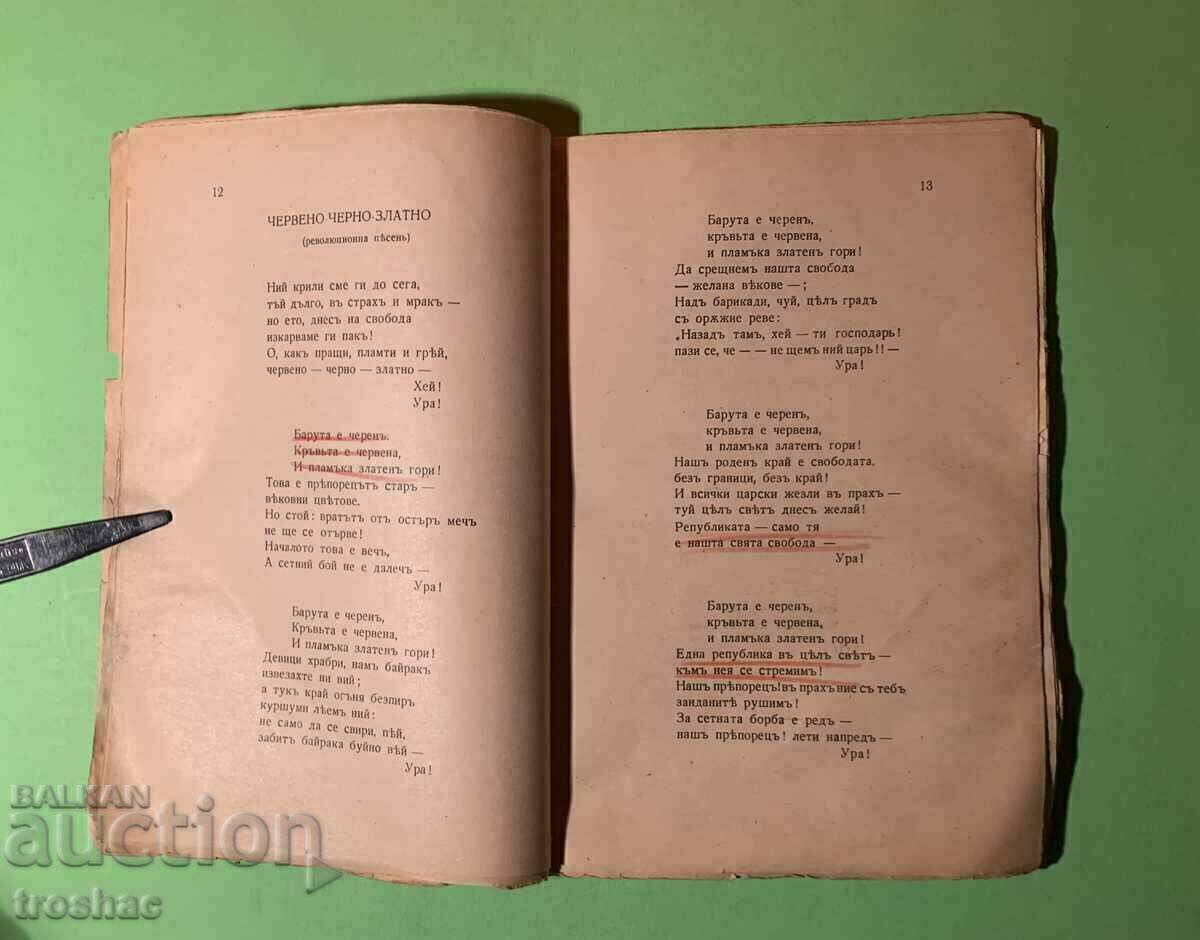 12
ЧЕРВЕНО-ЧЕРНО-ЗЛАТНО
(революционна пѣсень)
Ний крили сме ги до сега,
тъй дълго, въ страхъ и мракъ —
но ето, днесъ на свобода
изкарваме ги пакъ!
О, какъ пращи, пламти и грѣй,
червено — черно — златно —
Хей!
Ура!
Барута е черенъ.
Кръвьта е червена,
И пламъка златенъ гори!
Това е прѣпорецътъ старъ —
вѣковни цвѣтове.
Но стой: вратътъ отъ остъръ мечъ
не ще се отърве!
Началото това е вечъ,
А сетний бой не е далечъ —
Ура!
Барута е черенъ,
Кръвьта е червена,
И пламъка златенъ гори!
Девици храбри, намъ байракъ
извезахте ни вий;
а тукъ край огъня безпиръ
куршуми лѣемъ ний:
не само да се свири, пѣй,
забитъ байрака буйно вѣй —
Ура!
13
Барута е черенъ,
кръвьта е червена,
и пламъка златенъ гори!
Да срещнемъ нашта свобода
— желана вѣкове —;
Надъ барикади, чуй, цѣлъ градъ
съ орѫжие реве:
„Назадъ тамъ, хей — ти господарь!
пази се, че — — не щемъ ний царь!! —
Ура!
Барута е черенъ,
кръвьта е червена,
и пламъка златенъ гори!
Нашъ роденъ край е свободата.
безъ граници, безъ край!
И всички царски жезли въ прахъ —
туй цѣлъ свѣтъ днесъ желай!
Републиката — само тя
е нашта свята свобода —
Ура!
Барута е черенъ,
кръвьта е червена,
и пламъка златенъ гори!
Една република въ цѣлъ свѣтъ —
къмъ нея се стремимъ!
Нашъ прѣпорецъ! въ прахъ ние съ тебъ
занданитѣ рушимъ!
За сетната борба е редъ —
нашъ прѣпорецъ! лети напредъ —
Ура!
BALKAN
auction
troshac